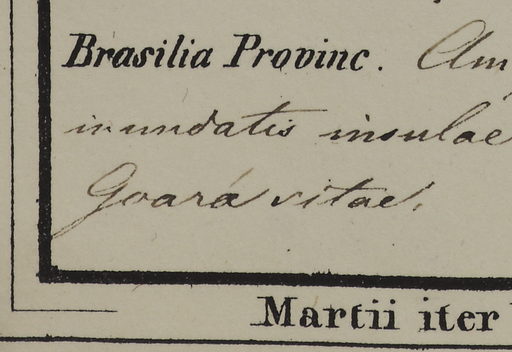 Brasilia Provinc. Am
inundatis insulae
Goará vitae.
Martii iter